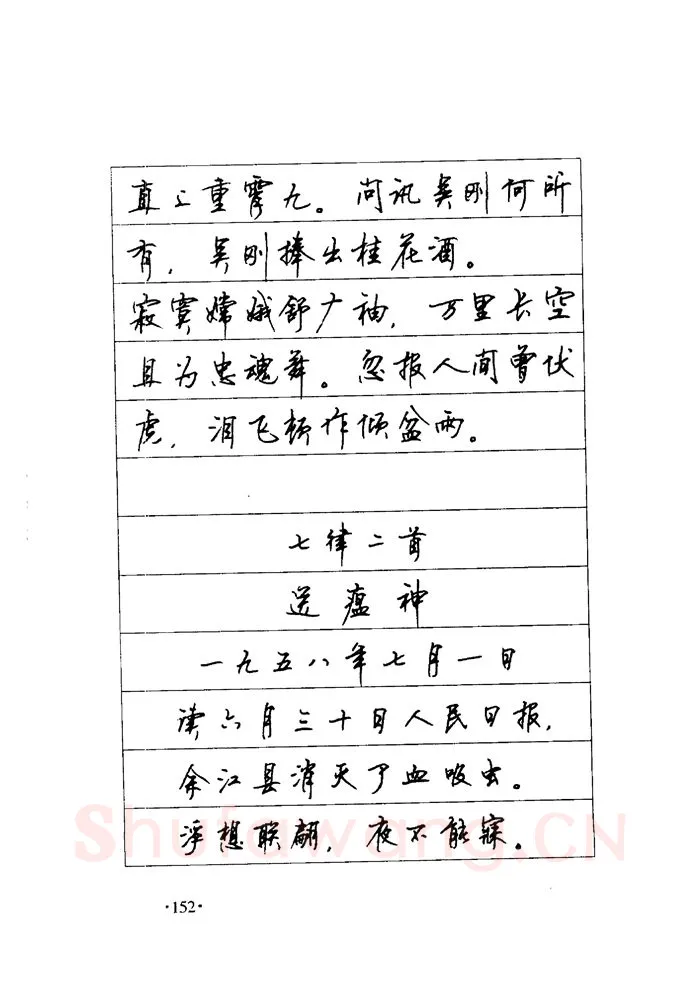 直上重霄九。问讯吴刚何所
有，吴刚捧出桂花酒。
寂寞嫦娥舒广袖，万里长空
且为忠魂舞。忽报人间曾伏
虎，泪飞顿作倾盆雨。
七律二首
送瘟神
一九五八年七月一日
读六月三十日人民日报，
余江县消灭了血吸虫。
浮想联翩，夜不能寐。
Shufawang.CN
·152·